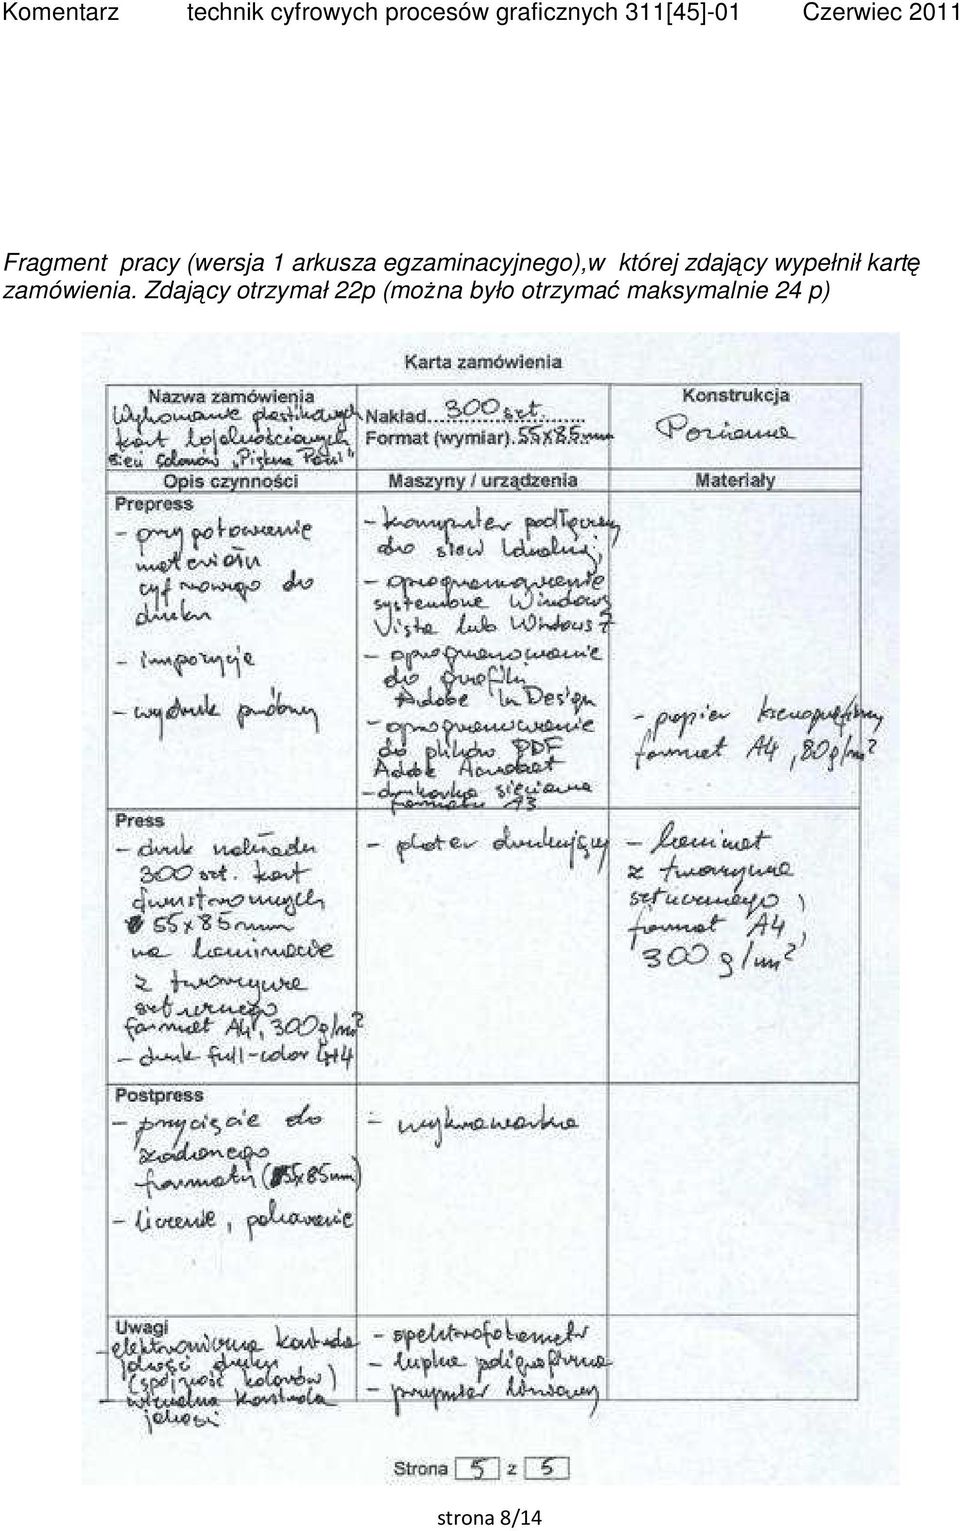 Komentarz technik cyfrowych procesów graficznych 311[45]-01 Czerwiec 2011
Fragment pracy (wersja 1 arkusza egzaminacyjnego),w której zdający wypełnił kartę
zamówienia. Zdający otrzymał 22p (można było otrzymać maksymalnie 24 p)
Karta zamówienia
Nazwa zamówienia
Wykonanie plastikowych
kart lojalnościowych
sieci salonów „Piękna Pani"
Nakład...300 szt.............
Format (wymiar).55x85mm
Konstrukcja
Pozioma
Opis czynności
Maszyny / urządzenia
Materiały
Prepress
- przygotowanie
materiału
cyfrowego do
druku
- impozycja
- wydruk próbny
- komputer podłączony
do sieci lokalnej,
- oprogramowanie
systemowe Windows
Vista lub Windows 7
- oprogramowanie
do grafiki
Adobe InDesign
- oprogramowanie
do plików PDF
Adobe Acrobat
- drukarka sieciowa
formatu A3
- papier kserograficzny
format A4, 80g/m²
Press
- druk nakładu
300 szt. kart
dwustronnych
55x85mm
na laminacie
z tworzywa
sztucznego
format A4, 300g/m²
- druk full-color 4+4
- ploter drukujący
- laminat
z tworzywa
sztucznego,
format A4,
300 g/m²
Postpress
- przycięcie do
zadanego
formatu (55x85mm)
- liczenie, pakowanie
- wykrawarka
Uwagi
- elektroniczna kontrola
jakości druku
(spójność kolorów)
- wizualna kontrola
jakości
- spektrofotometr
- lupka poligraficzna
- przymiar liniowy
Strona 5 z 5
strona 8/14